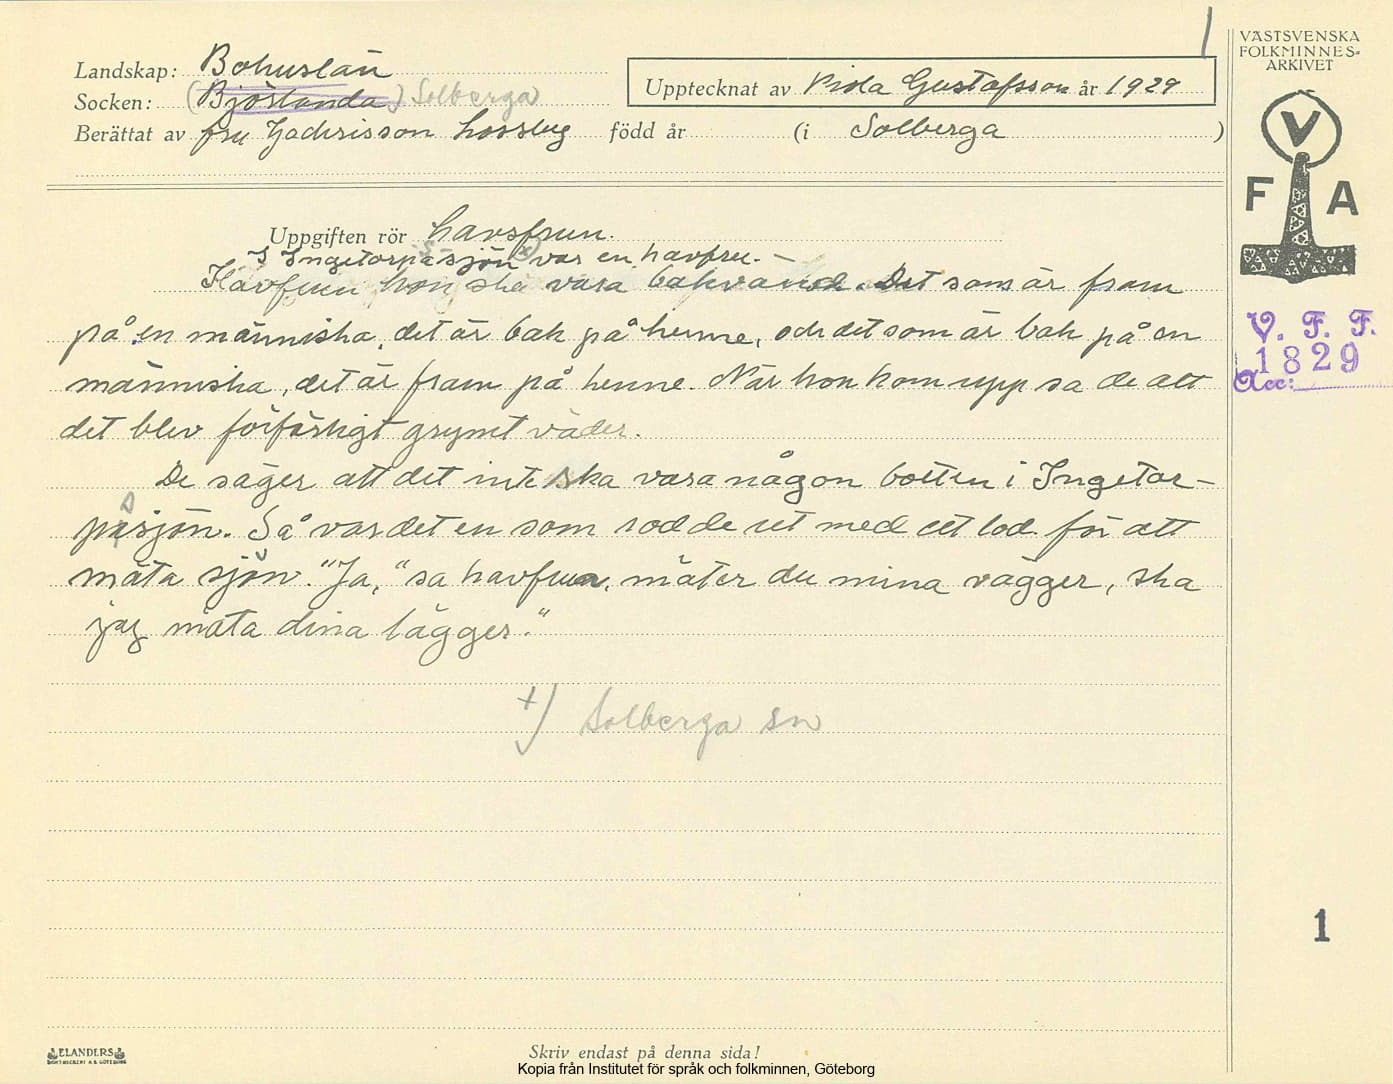 1
VÄSTSVENSKA
FOLKMINNES-
ARKIVET
Landskap: Bohuslän
Socken: (Björlanda) Solberga
Upptecknat av Viola Gustafsson år 1929
Berättat av fru Zachrisson född år (i Solberga )
V
F A
Uppgiften rör havsfrun.
I Ingetorpasjön x) var en havfru. –
Havfrun hon ska vara bakvänd. Det som är fram
på en människa, det är bak på henne, och det som är bak på en
människa, det är fram på henne. När hon kom upp sa de att
det blev förfärligt grymt väder.
De säger att det inte ska vara någon botten i Ingetor-
pasjön. Så var det en som rodde ut med ett lod för att
mäta sjön. "Ja," sa havfrun, mäter du mina vägger, ska
jag mäta dina lägger."
+) Solberga sn
V. F. F.
1829
Acc:
1
ELANDERS
Skriv endast på denna sida!
Kopia från Institutet för språk och folkminnen, Göteborg